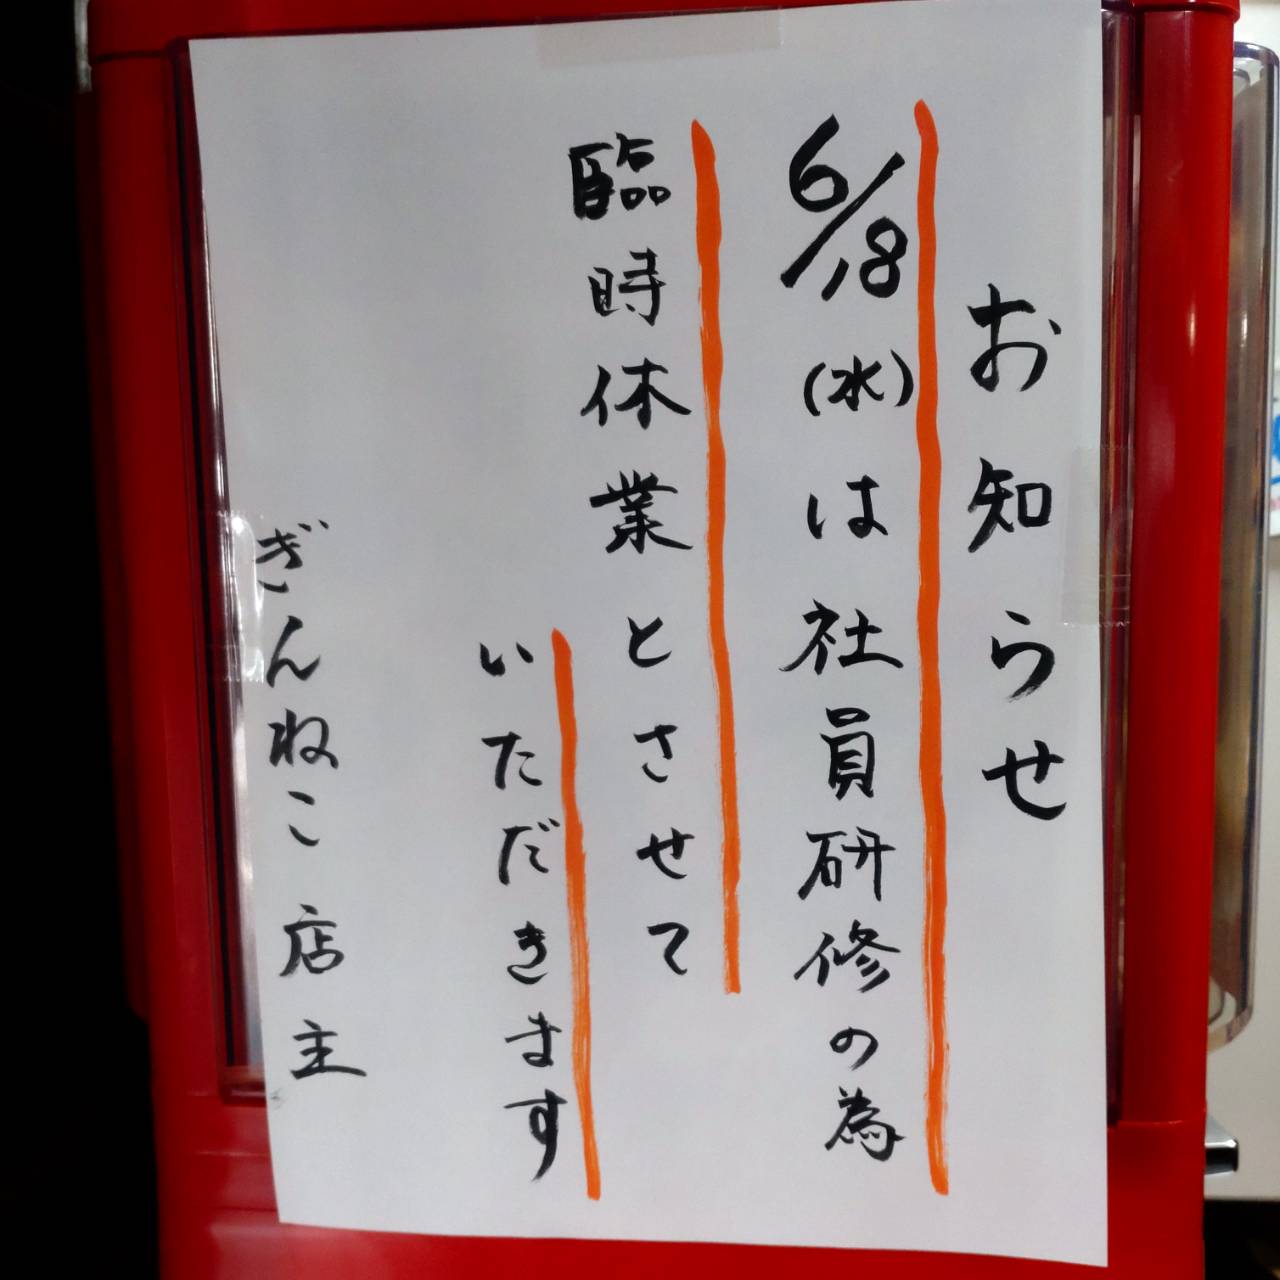 お知らせ
6/18(水)は社員研修の為
臨時休業とさせて
いただきます
ぎんねこ店主